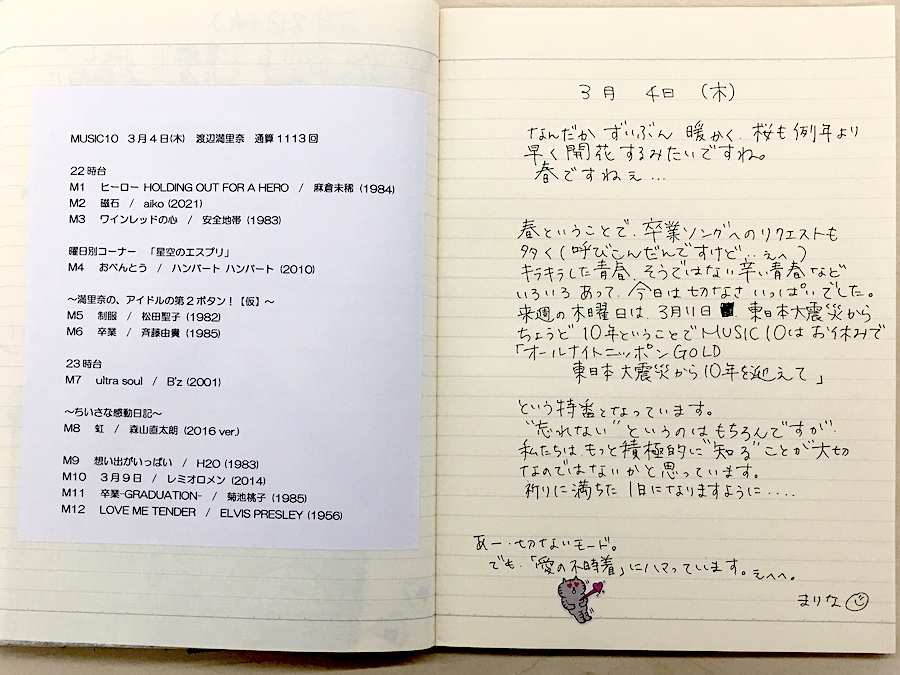 MUSIC10 3月4日(木) 渡辺満里奈 通算1113回
22時台
M1 ヒーロー HOLDING OUT FOR A HERO / 麻倉未稀 (1984)
M2 磁石 / aiko (2021)
M3 ワインレッドの心 / 安全地帯 (1983)
曜日別コーナー 「星空のエスプリ」
M4 おべんとう / ハンバート ハンバート (2010)
～満里奈の、アイドルの第2ボタン！【仮】～
M5 制服 / 松田聖子 (1982)
M6 卒業 / 斉藤由貴 (1985)
23時台
M7 ultra soul / B'z (2001)
～ちいさな感動日記～
M8 虹 / 森山直太朗 (2016 ver.)
M9 想い出がいっぱい / H2O (1983)
M10 3月9日 / レミオロメン (2014)
M11 卒業-GRADUATION- / 菊池桃子 (1985)
M12 LOVE ME TENDER / ELVIS PRESLEY (1956)
3月 4日 (木)
なんだか ずいぶん 暖かく、桜も例年より
早く開花するみたいですね。
春ですねぇ…
春ということで、卒業ソングへのリクエストも
多く(呼びこんだんですけど…えへ)
キラキラした青春、そうではない辛い青春など
いろいろあって、今日は切なさいっぱいでした。
来週の木曜日は、3月11日 東日本大震災から
ちょうど10年ということでMUSIC10はお休みで
「オールナイトニッポンGOLD
東日本大震災から10年を迎えて」
という特番となっています。
"忘れない"というのはもちろんですが、
私たちは、もっと積極的に"知る"ことが大切
なのではないかと思っています。
祈りに満ちた1日になりますように‥‥
あー、切ないモード。
でも、「愛の不時着」にハマっています。えへへ。
まりな